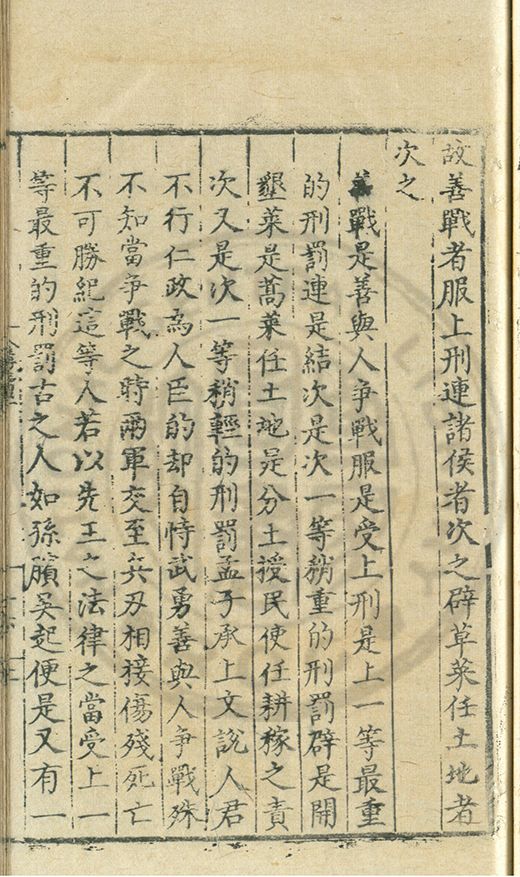 故善戰者服上刑連諸侯者次之辟草萊任土地者
次之
善戰是善與人爭戰服是受上刑是上一等最重
的刑罰連是結次是次一等稍重的刑罰辟是開
墾萊是蒿萊任土地是分土授民使任耕稼之責
次又是次一等稍輕的刑罰孟子承上文說人君
不行仁政為人臣的却自恃武勇善與人爭戰殊
不知當爭戰之時兩軍交至兵刃相接傷殘死亡
不可勝紀這等人若以先王之法律之當受上一
等最重的刑罰古之人如孫臏吳起便是又有一